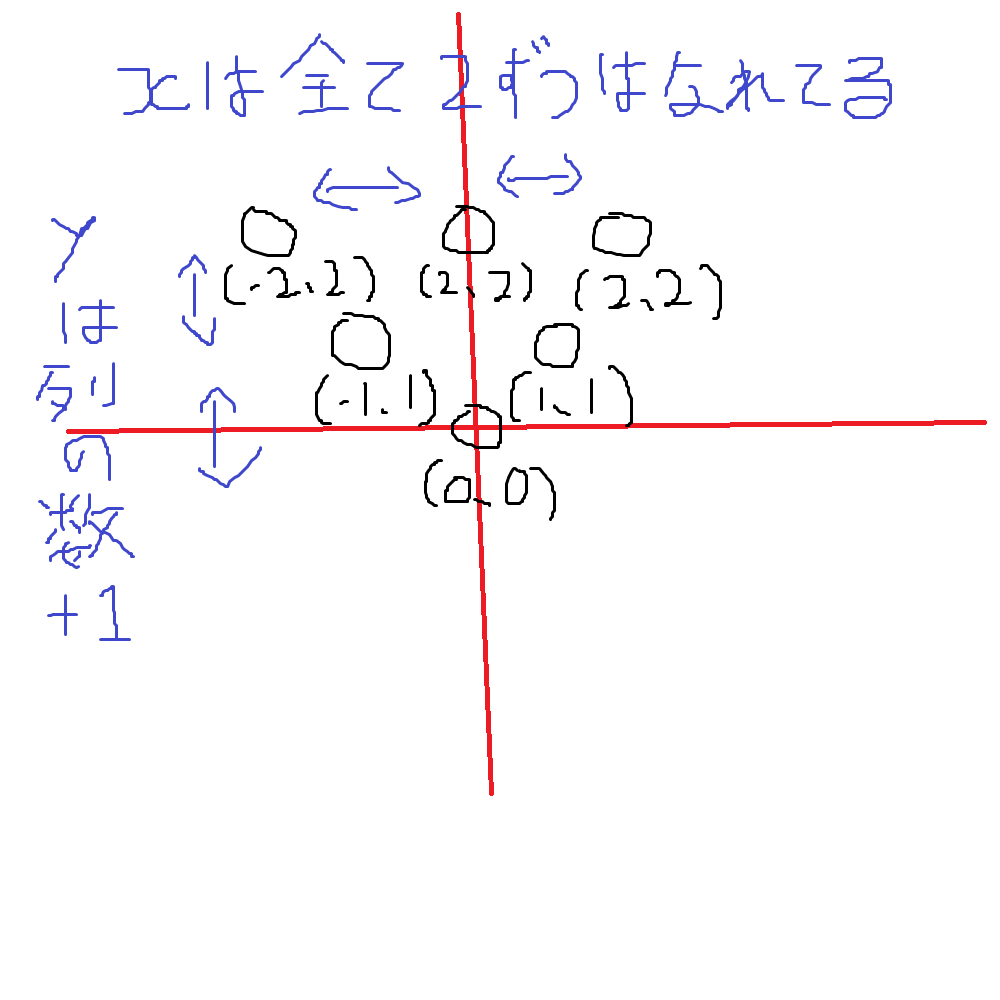 xは全て2ずつはなれてる
yは列の数+1
(-2,2) (2、2) (2、2)
(-1.1) (1、1)
(0、0)